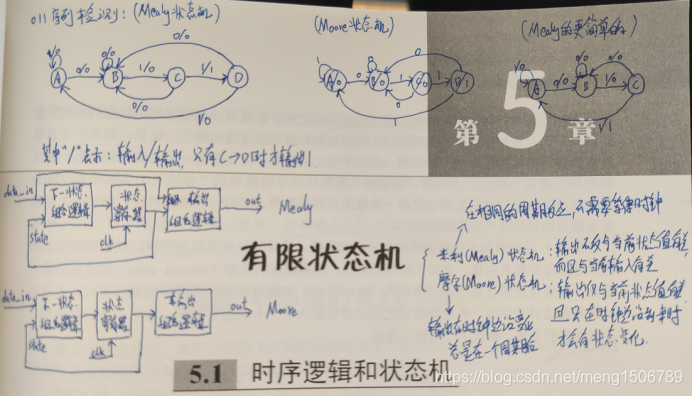 011序列检测: (Mealy状态机)
(Moore状态机)
(Mealy的更简单的)
1/0
A
0/0
B
0/0
1/0
C
1/1
D
0/0
0/0
1/0
1
A/0
0
B/0
0
1
C/0
1
D/1
0
0
1
1/0
A
0/0
B
0/0
1/0
C
0/0
1/1
其中"/"表示: 输入/输出, 只有C→D时才输出1
第5章
data_in
下一状态
组合逻辑
状态
寄存器
输出
组合逻辑
out
Mealy
state
clk
有限状态机
在相同的周期内,不需要等待时钟
米利(Mealy)状态机: 输出不仅与当前状态值有关,
而且与当前输入有关
摩尔(Moore)状态机: 输出仅与当前状态值有关
且只在时钟边沿到来时
才会有状态变化.
输出在时钟边沿变化
总是在一个周期后
data_in
下一状态
组合逻辑
状态
寄存器
输出
组合逻辑
out
Moore
state
clk
5.1 时序逻辑和状态机
https://blog.csdn.net/meng1506789